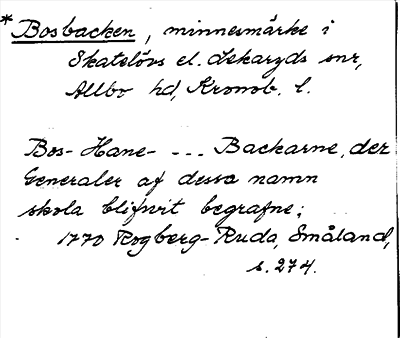 * Bosbacken, minnesmärke i
Skatelövs el. Lekaryds snr,
Allbo hd, Kronob. l.
Bos- Hane- --- Backarne, der
Generaler af dessa namn
skola blifvit begrafne;
1770 Rogberg-Ruda, Småland,
s. 274.